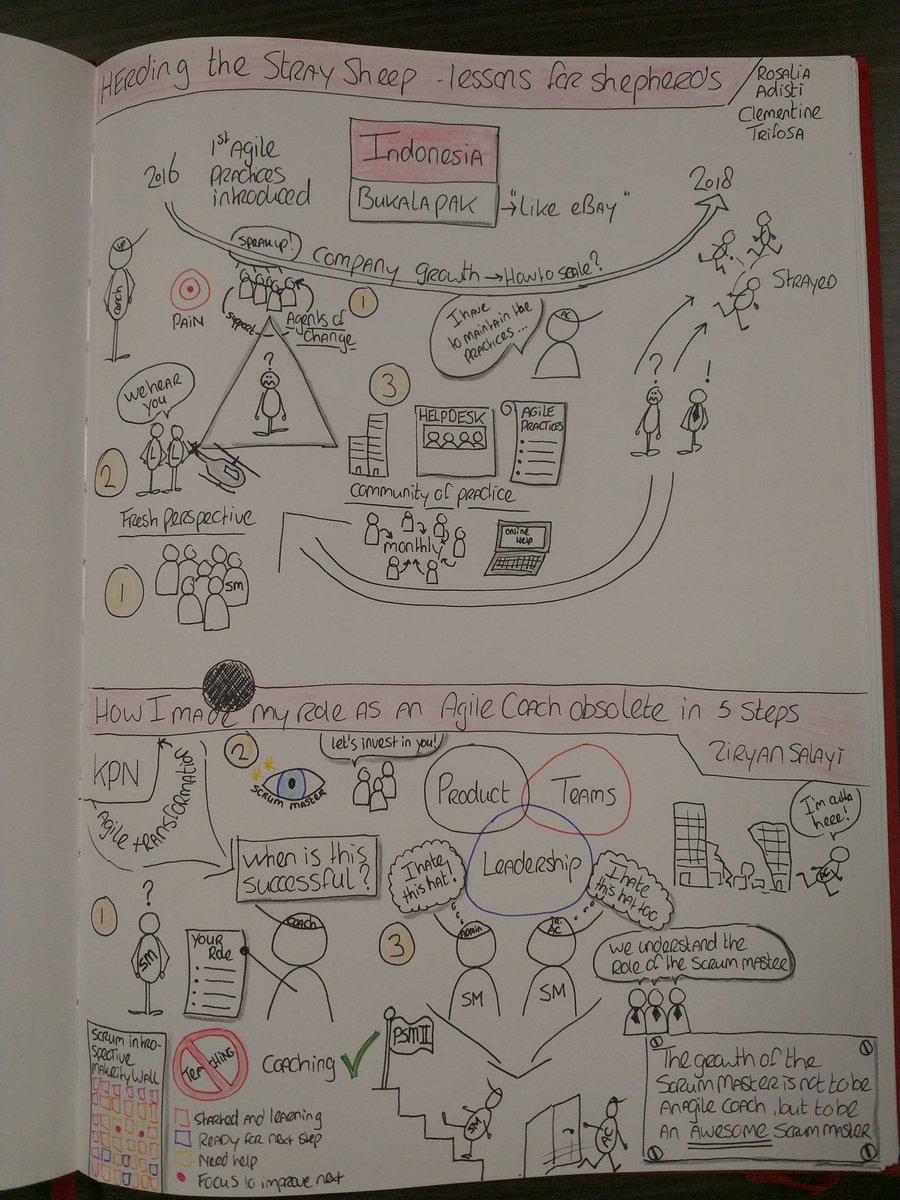 HERDING the STRAY SHEEP - lessons for shepherd's
ROSALIA
ADISTI
Clementine
TRIFOSA
2016
1st AGILE
PRACTICES
introduced
INDONESIA
BUKALAPAK
→ "LIKE eBAY"
2018
SPEAK UP!
COMPANY GROWTH → HOW to SCALE?
STRAYED
UP
COACH
PAIN
SUPPORT
AGENTS OF
CHANGE
1
I have
to maintain the
practices...
AC
?
We hear
you
3
HELPDESK
AGILE
PRACTICES
?
!
L
L
2
Community of practice
Fresh perspective
monthly
online
Help
1
SM
HOW I made my Role AS AN AGILE COACH obsolete in 5 Steps
ZIRYAN SALAYI
KPN
AGILE TRANSFORMATION
2
SCRUM MASTER
Let's invest in you!
Product
TEAMS
Leadership
I'm outta
here!
AC
When is this
successful?
I hate
this hat!
I hate
this hat too
1
?
SM
YOUR
Role
COACH
3
ADMIN
JR.
AC
SM
SM
We understand the
Role of the SCRUM MASTER
SCRUM INTRO-
SPECTIVE
MATURITY WALL
TEACHING
COACHING
PSM II
SM
AC
STARTED and learning
READY for next step
Need help
FOCUS to improve next
The growth of the
SCRUM MASTER is not to be
AN AGILE COACH, but to be
AN AWESOME SCRUM MASTER